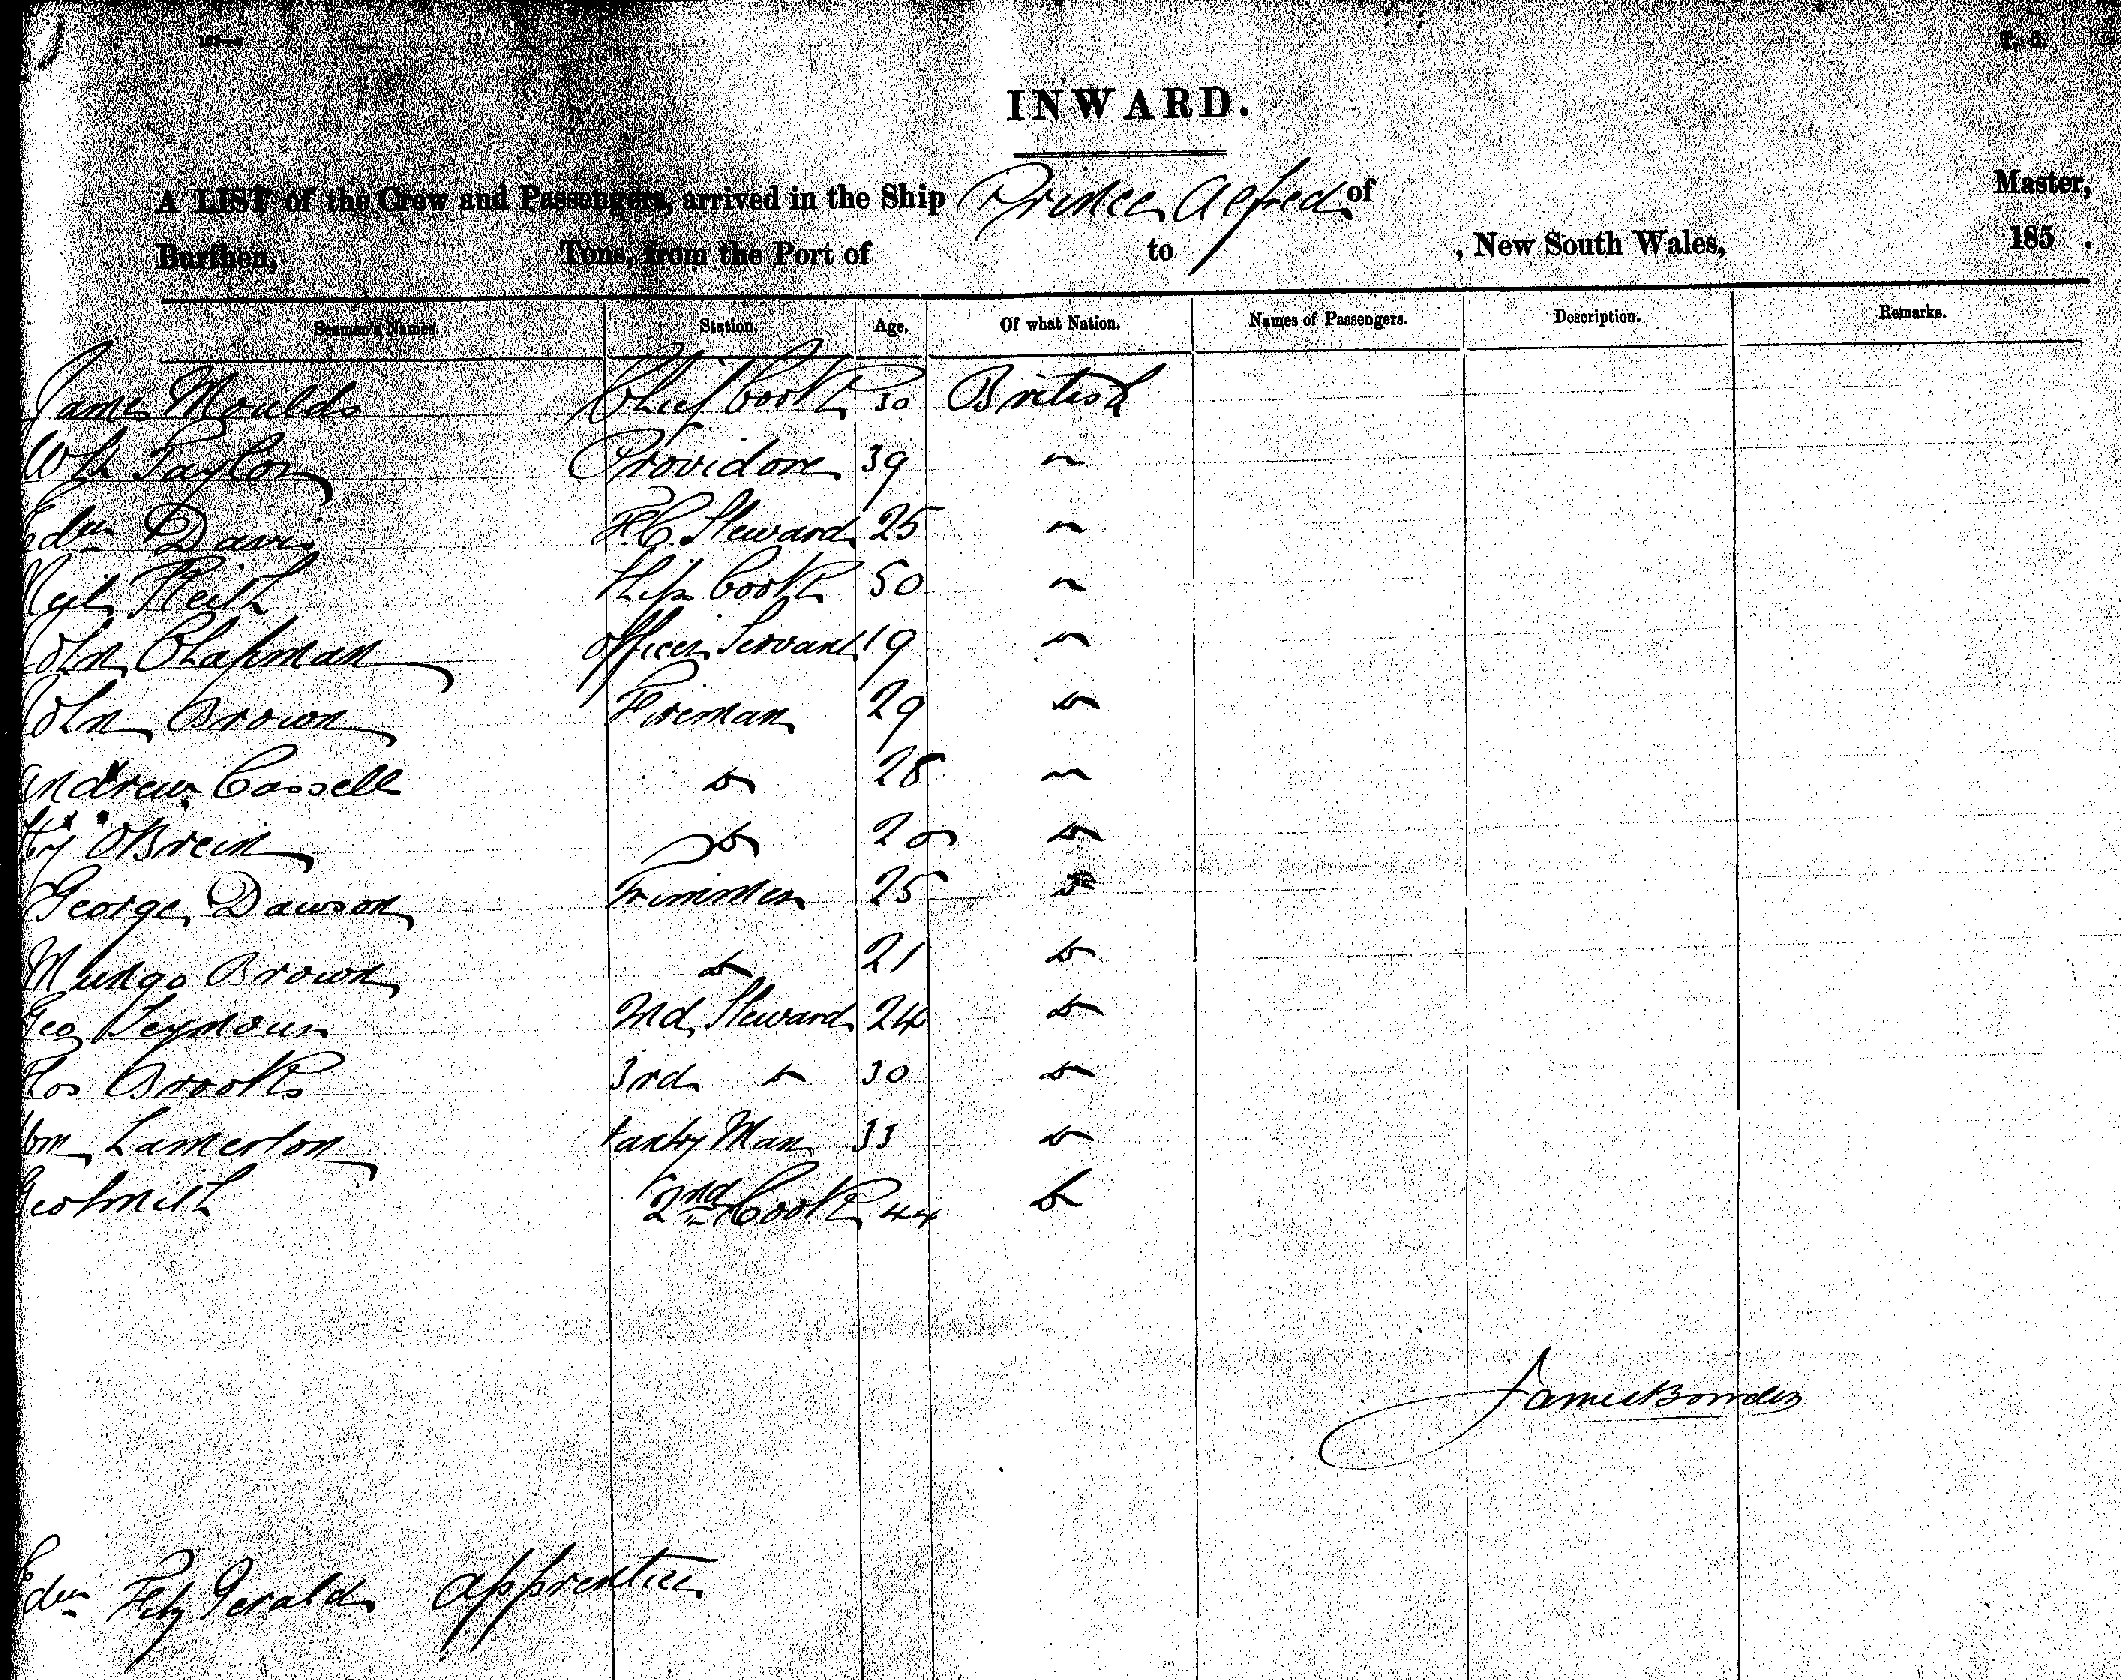 INWARD.
A LIST of the Crew and Passengers, arrived in the Ship Prince Alfred of Master,
Burthen, Tons, from the Port of to , New South Wales, 185 .
Seamen's Names. Station. Age. Of what Nation. Names of Passengers. Description. Remarks.
James Moulds Chief Cook 30 British
Wm Taylor Providore 39 "
Edwn Davis F.C. Steward 25 "
Neil Keith Ships Cook 50 "
John Chapman Officers Servant 19 "
John Brown Fireman 29 do
Andrew Cassell do 28 "
Hy OBrein do 20 do
George Dawson Trimmer 25 do
Mungo Brown do 21 do
Geo Seymour 2nd Steward 24 do
Thos Brooks 3rd do 30 do
Wm Lamerton Pantry Man 33 do
Geo Smith 2nd Cook 44 do
James Bowden
Edwn Fitz Gerald Apprentice